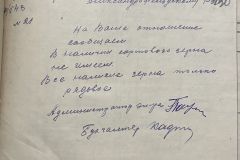 № 21
На Ваше отношение
сообщаем
В наличии сортового зерна
не имеем.
Все наличие зерна только
рядовое.
Администратор
Бухгалтер